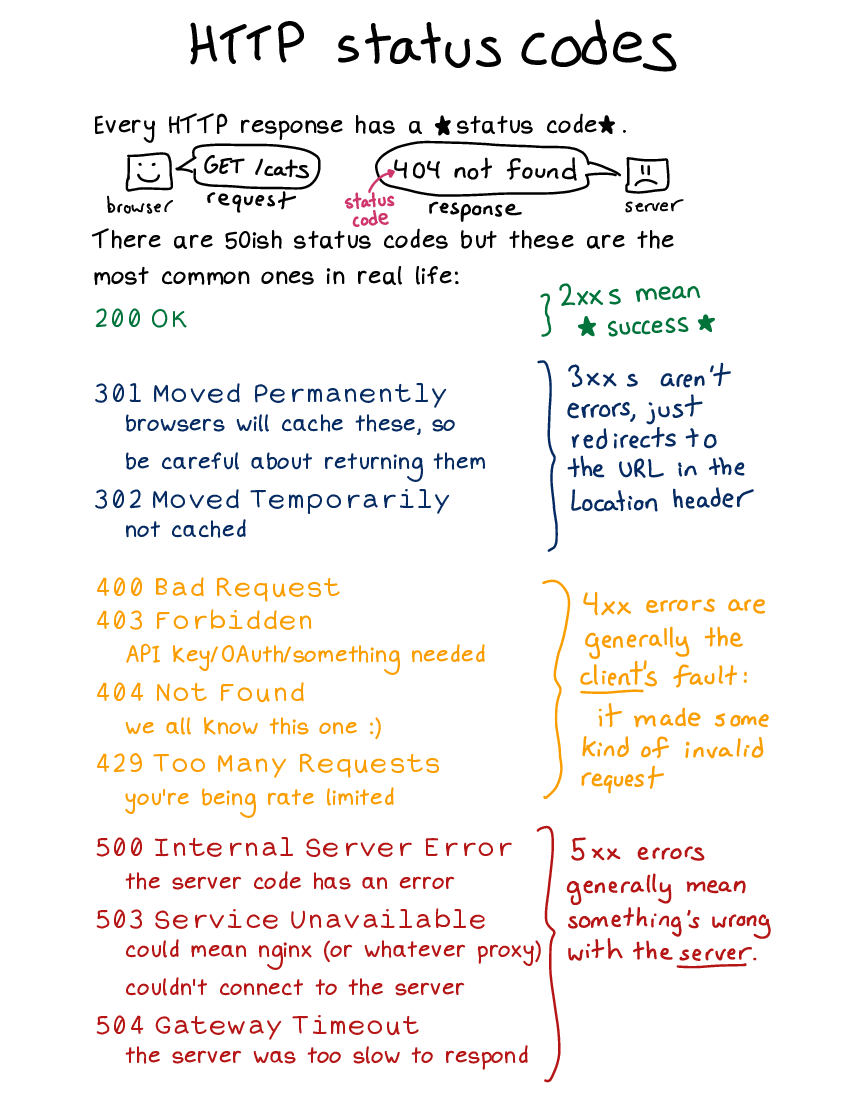 HTTP status codes
Every HTTP response has a ★status code★.
GET /cats
404 not found
browser
request
status
code
response
server
There are 50ish status codes but these are the
most common ones in real life:
200 OK
2xx s mean
★ success ★
301 Moved Permanently
browsers will cache these, so
be careful about returning them
302 Moved Temporarily
not cached
3xx s aren't
errors, just
redirects to
the URL in the
Location header
400 Bad Request
403 Forbidden
API key/OAuth/something needed
404 Not Found
we all know this one :)
429 Too Many Requests
you're being rate limited
4xx errors are
generally the
client's fault:
it made some
kind of invalid
request
500 Internal Server Error
the server code has an error
503 Service Unavailable
could mean nginx (or whatever proxy)
couldn't connect to the server
504 Gateway Timeout
the server was too slow to respond
5xx errors
generally mean
something's wrong
with the server.